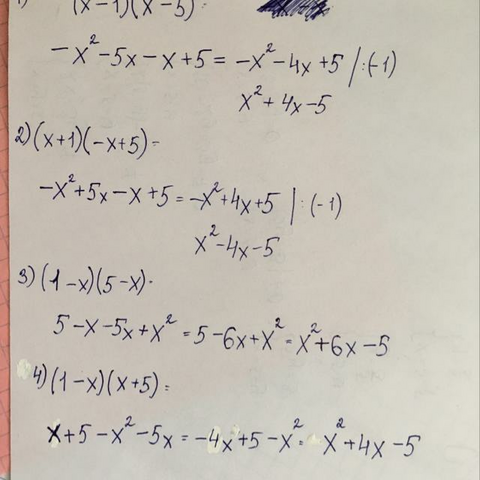 1) (x-1)(x-5)=
-x²-5x-x+5 = -x²-4x+5 |:(-1)
x²+4x-5
2) (x+1)(-x+5)=
-x²+5x-x+5 = -x²+4x+5 |:(-1)
x²-4x-5
3) (1-x)(5-x)=
5-x-5x+x² = 5-6x+x² = x²+6x-5
4) (1-x)(x+5)=
x+5-x²-5x = -4x+5-x² = x²+4x-5